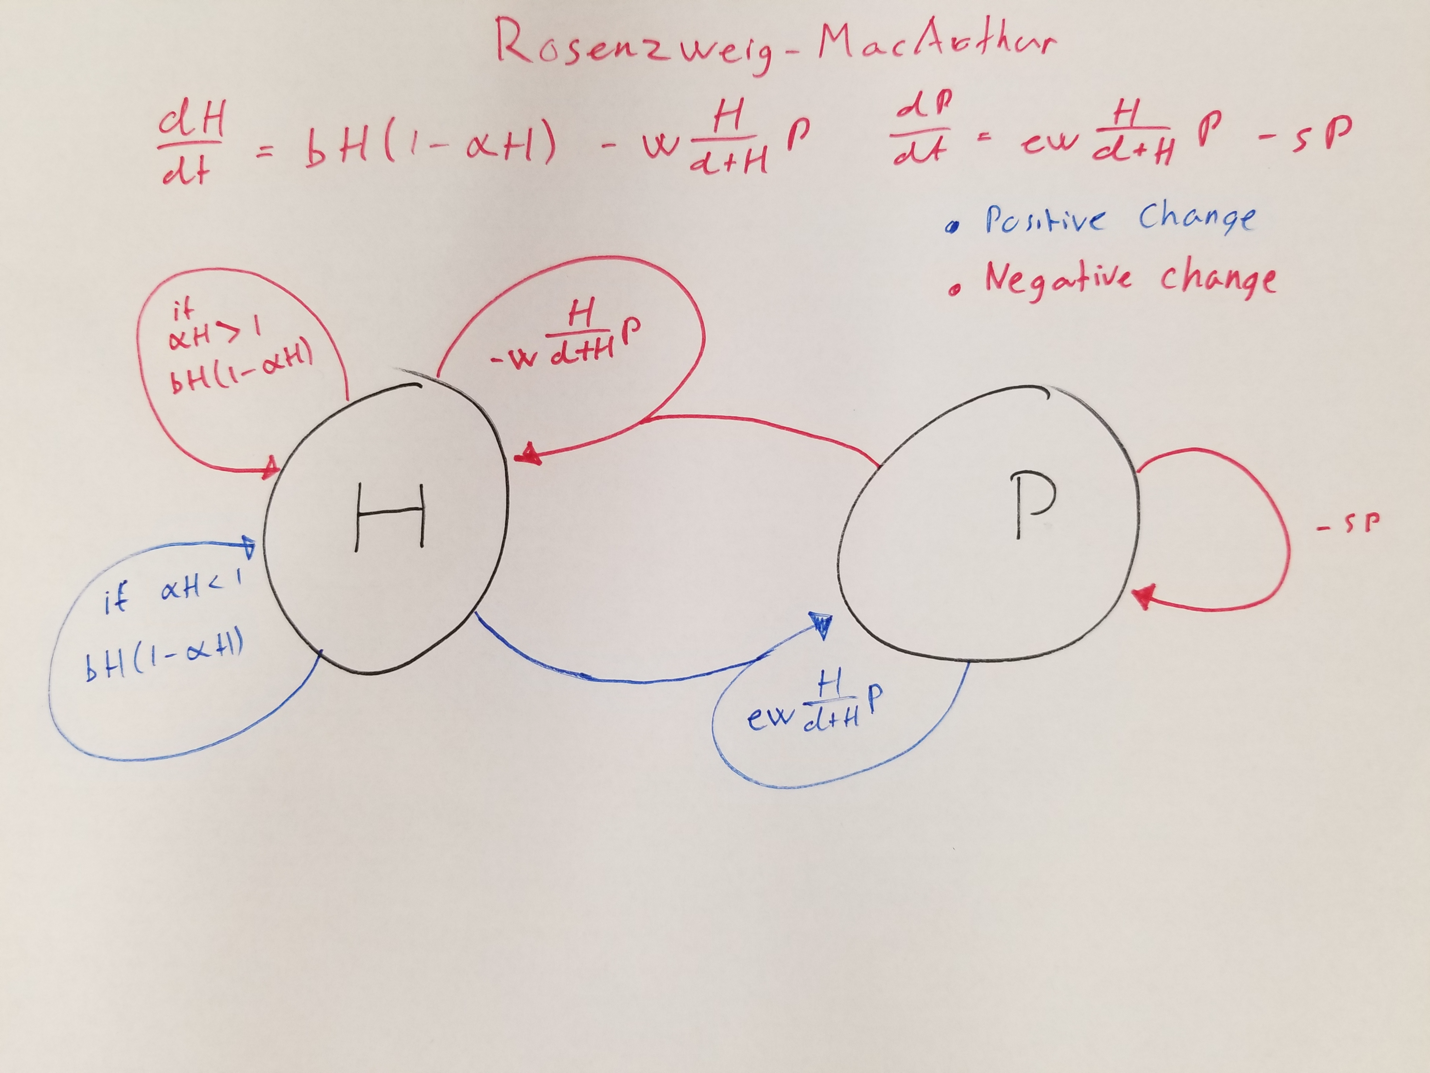 Rosenzweig-MacArthur
dH/dt = bH(1-αH) - w H/(d+H) P    dP/dt = ew H/(d+H) P - sP
• Positive Change
• Negative change
if
αH > 1
bH(1-αH)
-w H/(d+H) P
H
P
-sP
if αH < 1
bH(1-αH)
ew H/(d+H) P